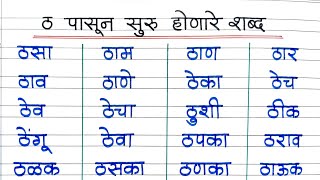 ठ पासून सुरु होणारे शब्द
ठसा ठाम ठाण ठार
ठाव ठाणे ठेका ठेच
ठेव ठेचा ठुशी ठीक
ठेंगू ठेवा ठपका ठराव
ठळक ठसका ठणका ठाऊक